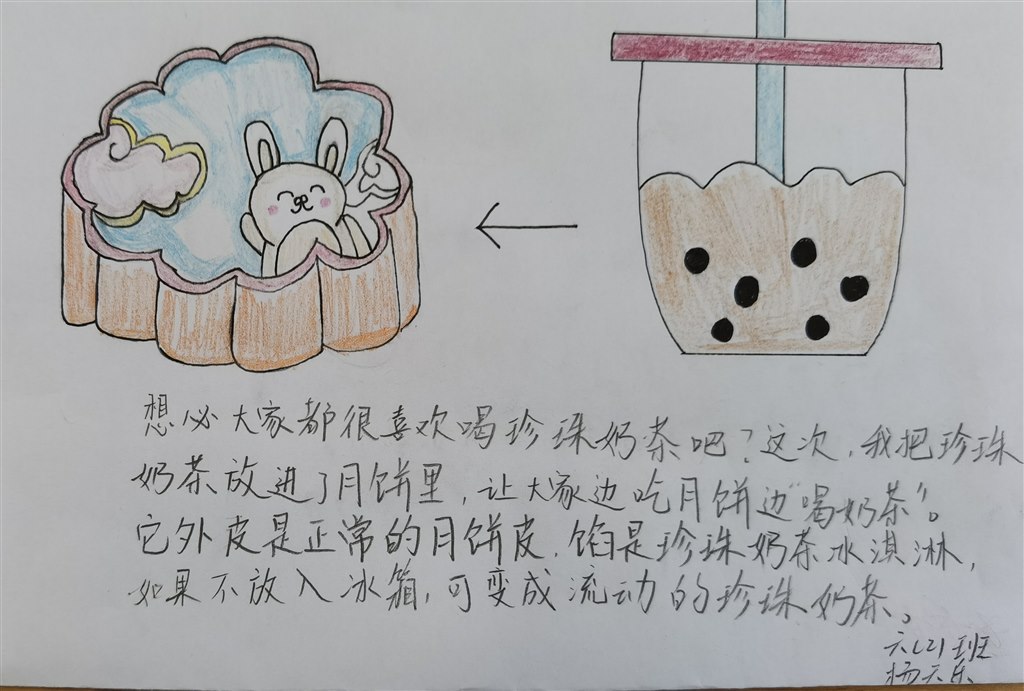 想必大家都很喜欢喝珍珠奶茶吧？这次，我把珍珠
奶茶放进了月饼里，让大家边吃月饼边“喝奶茶”。
它外皮是正常的月饼皮，馅是珍珠奶茶冰淇淋，
如果不放入冰箱，可变成流动的珍珠奶茶。
六(2)班
杨天乐